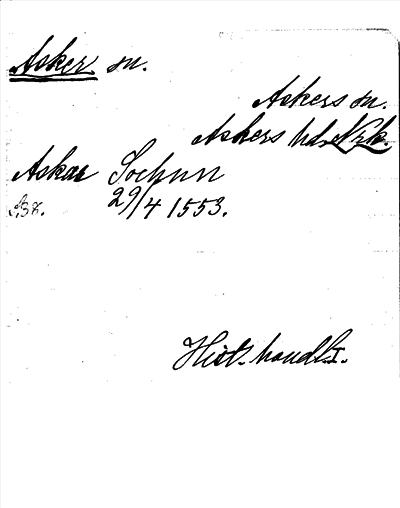 Asker sn.
Askers sn.
Askers hd. Nrk.
Askar Sochnn
29/4 1553.
Hist. handl. I.